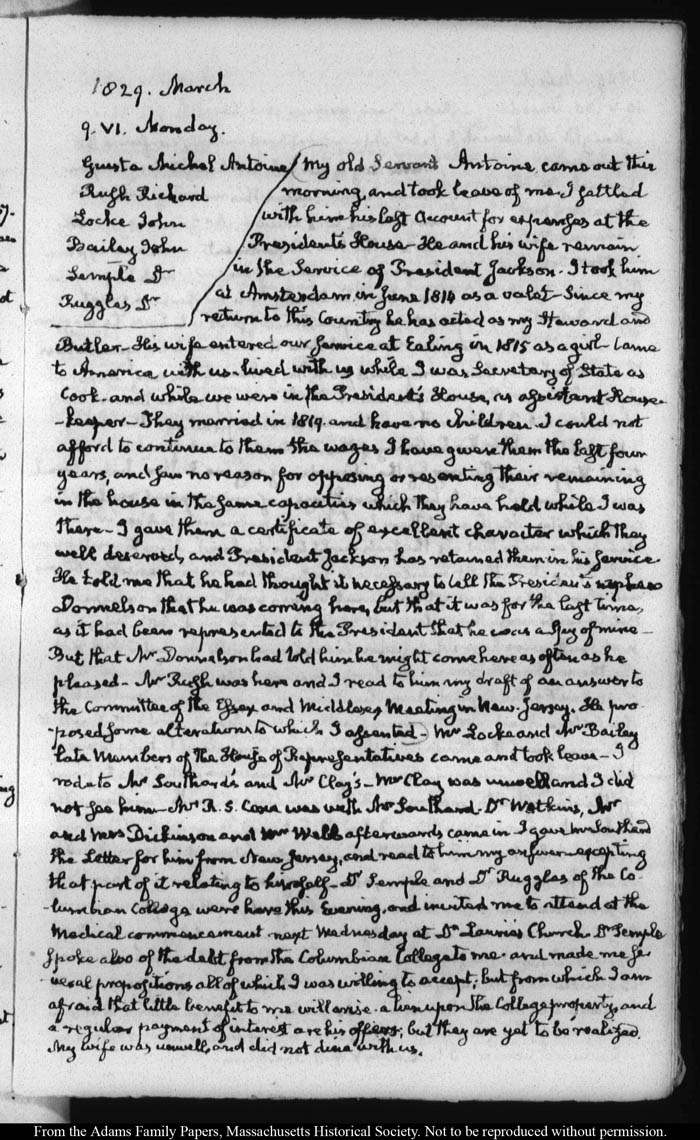 1829. March
9. VI. Monday.
Giusta Michel Antoine
Rush Richard
Locke John
Bailey John
Semple Dr
Ruggles Dr
My old Servant Antoine came out this
morning, and took leave of me. I settled
with him his last Account for expenses at the
President's House— He and his wife remain
in the Service of President Jackson. I took him
at Amsterdam in June 1814 as a valet— Since my
return to this Country he has acted as my Steward and
Butler— His wife entered our service at Ealing in 1815 as a girl— Came
to America with us— lived with us while I was Secretary of State as
Cook— and while we were in the President's House, as assistant House-
-keeper— They married in 1819. and have no children. I could not
afford to continue to them the wages I have given them the last four
years, and saw no reason for opposing or resenting their remaining
in the house in the same capacities which they have held while I was
there— I gave them a certificate of excellent character which they
well deserved, and President Jackson has retained them in his service
He told me that he had thought it necessary to tell the President's nephew
Donnelson that he was coming here, but that it was for the last time,
as it had been represented to the President that he was a Spy of mine—
But that Mr Donnelson had told him he might come here as often as he
pleased— Mr Rush was here and I read to him my draft of an answer to
the Committee of the Essex and Middlesex Meeting in New-Jersey. He pro-
-posed some alterations to which I assented— Mr Locke and Mr Bailey
late Members of the House of Representatives came and took leave— I
rode to Mr Southard's and Mr Clay's— Mr Clay was unwell and I did
not see him— Mr R. S. Coxe was with Mr Southard. Dr Watkins, Mr
and Mrs Dickinson and Mr Webb afterwards came in. I gave Mr Southard
the Letter for him from New Jersey, and read to him my answer— excepting
that part of it relating to himself— Dr Semple and Dr Ruggles of the Co-
-lumbian College were here this Evening, and invited me to attend at the
Medical commencement next Wednesday at Dr Laurie's Church. Dr Semple
spoke also of the debt from the Columbian College to me. and made me se-
veral propositions all of which I was willing to accept; but from which I am
afraid that little benefit to me will arise. a lien upon the College property, and
a regular payment of interest are his offers; but they are yet to be realized.
My wife was unwell, and did not dine with us.
From the Adams Family Papers, Massachusetts Historical Society. Not to be reproduced without permission.